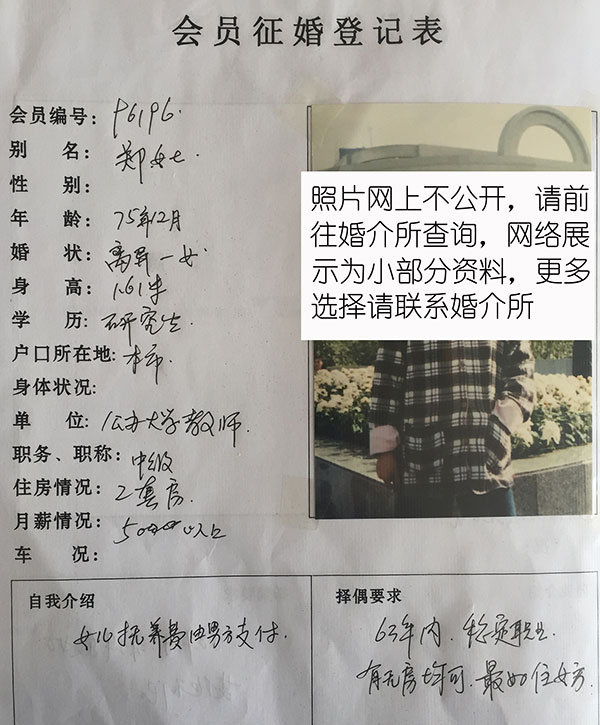 会员征婚登记表
会员编号: P6196.
别 名: 郑女士.
性 别:
年 龄: 75年12月
婚 状: 离异一女
身 高: 1.61米
学 历: 研究生
户口所在地: 本市.
身体状况:
单 位: 公办大学教师.
职务、职称: 中级
住房情况: 2套房
月薪情况: 5000以上
车 况:
照片网上不公开,请前
往婚介所查询,网络展
示为小部分资料,更多
选择请联系婚介所
自我介绍
女儿抚养费由男方支付.
择偶要求
63年内. 稳定职业.
有无房均可. 最好住女方.